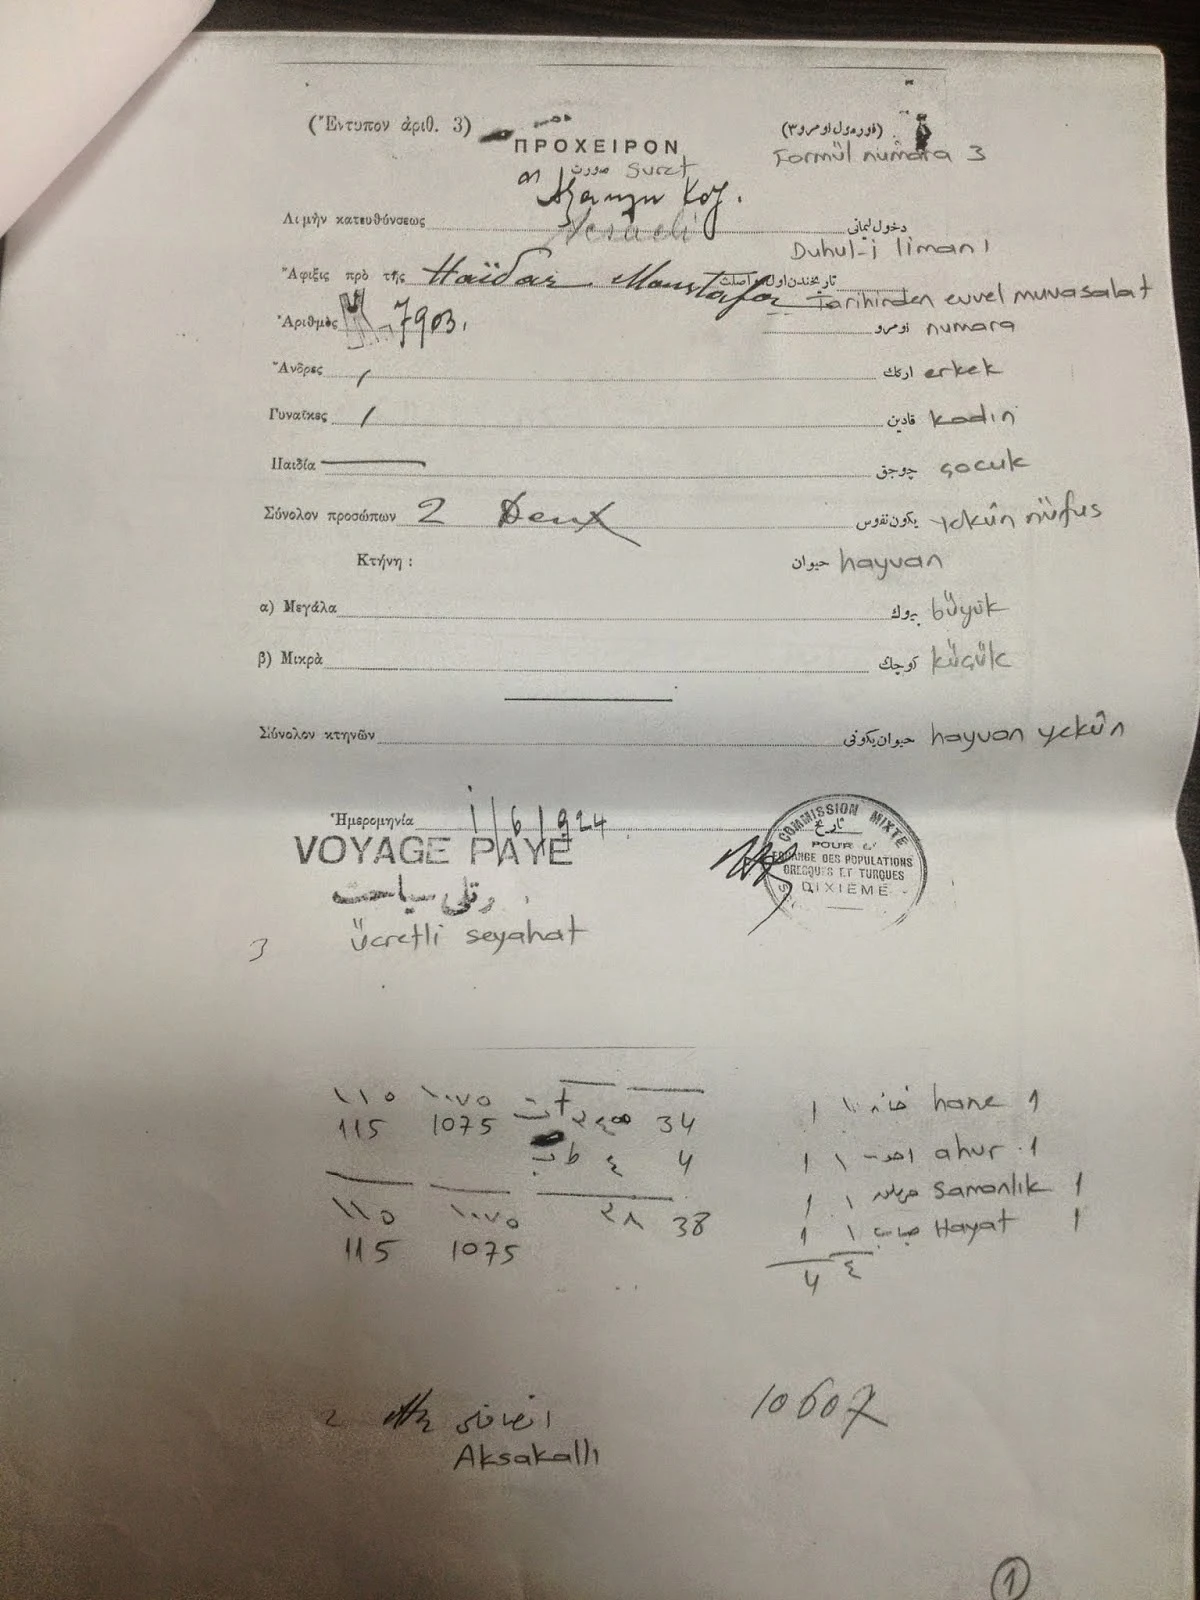 (Ἔντυπον ἀριθ. 3) (فورمول نومرو ٣)
ΠΡΟΧΕΙΡΟΝ Formül numara 3
صورت Suret
Λιμὴν κατευθύνσεως دخول ليمانى
Duhul-i limanı
Ἄφιξις πρὸ τῆς Haïdar Moustafa تاريخندن اول مواصلت Tarihinden evvel muvasalat
Ἀριθμὸς 7903. نومرو numara
Ἄνδρες 1 اركك erkek
Γυναῖκες 1 قادين kadın
Παιδία — چوجق çocuk
Σύνολον προσώπων 2 Deux يكون نفوس yekûn nüfus
Κτήνη : حيوان hayvan
α) Μεγάλα بيوك büyük
β) Μικρὰ كوچك küçük
Σύνολον κτηνῶν حيوان يكونى hayvan yekûn
Ἡμερομηνία 1/6/924
COMMISSION MIXTE
تاريخ
POUR L'
ECHANGE DES POPULATIONS
GRECQUES ET TURQUES
DIXIÈME
VOYAGE PAYE
سياحت
ücretli seyahat
3
١١٥ ١٠٧٥
115 1075 34
٤ 4
١١٥ ١٠٧٥ ٣٨ 38
115 1075
1 ١ خانه hane 1
1 ١ ahur 1
1 ١ Samanlık 1
1 ١ Hayat 1
4 ٤
2
Aksakallı
10607
1